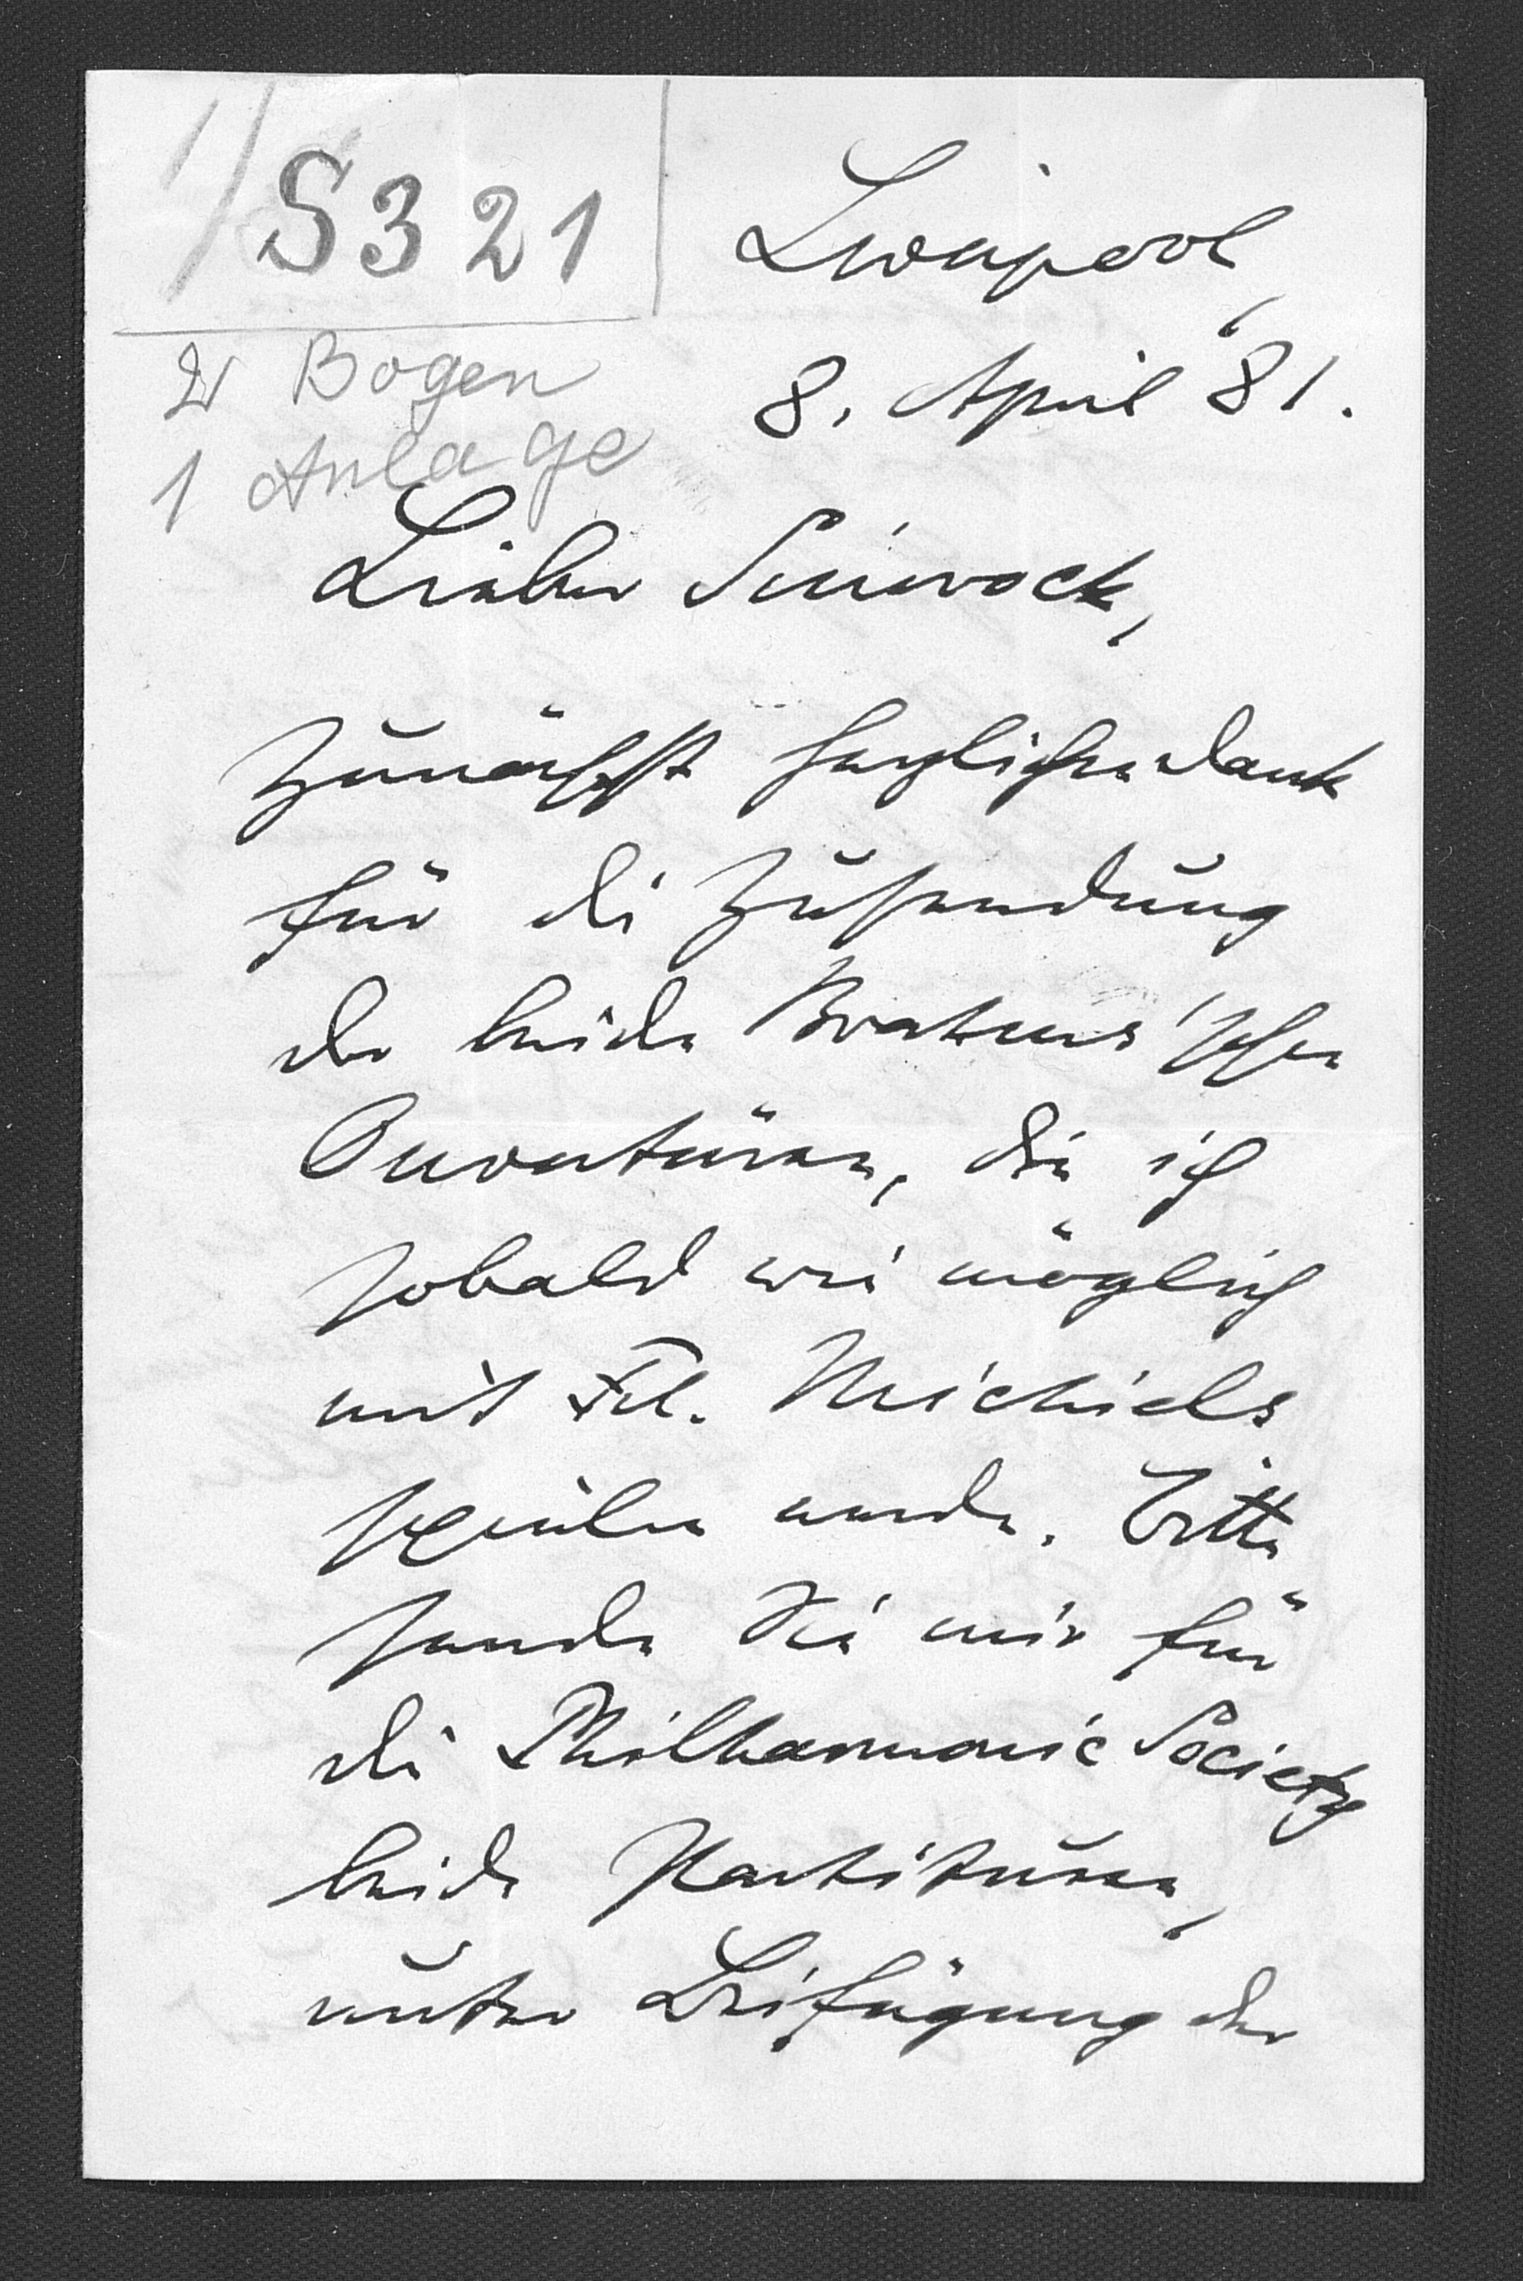 S 321
2 Bogen
1 Anlage
Liverpool,
8. April 81.
Lieber Simrock,
zunächst herzlichen Dank
für die Zusendung
der beiden Brahms'schen
Ouvertüren, die ich
sobald wie möglich
mit Frl. Michiels
spielen werde. Bitte
senden Sie mir für
die Philharmonic Society
beide Partituren,
unter Beifügung der